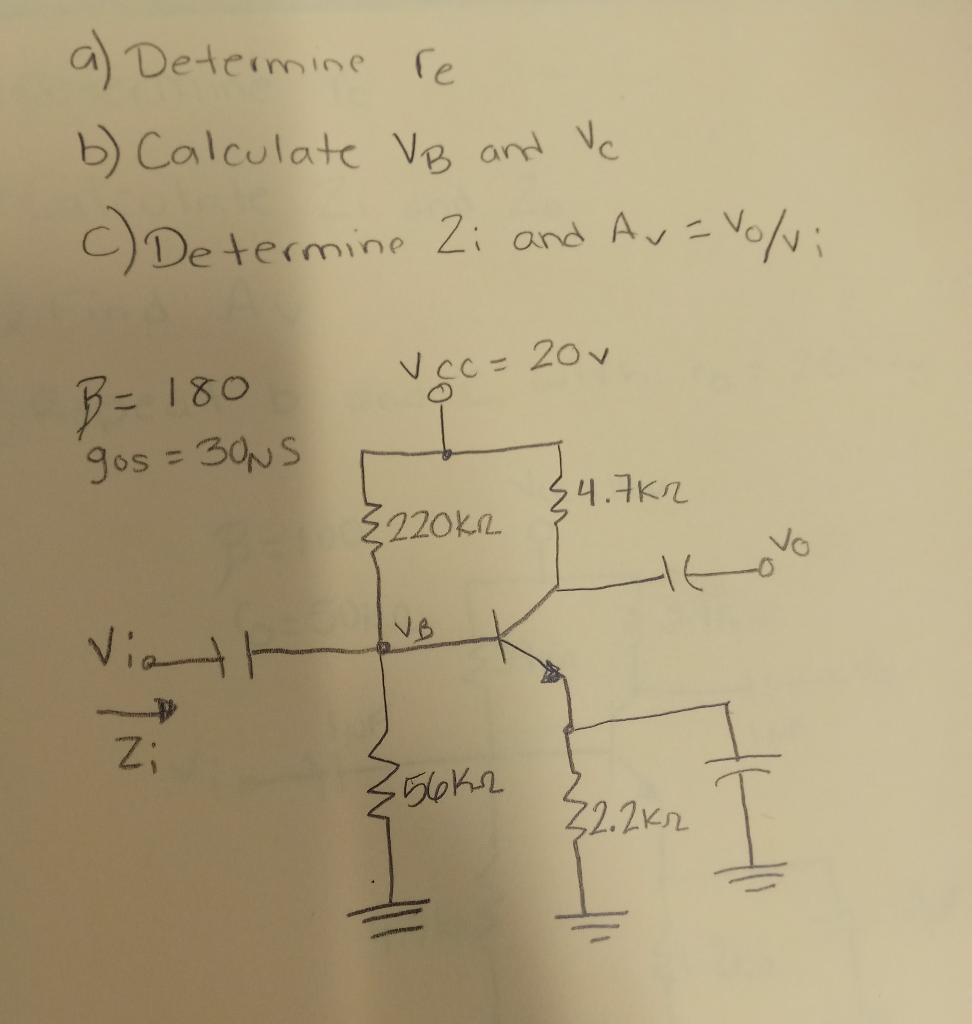 a) Determine re
b) Calculate VB and Vc
c) Determine Zi and Av = Vo/Vi
VCC = 20V
β = 180
gos = 30μS
4.7KΩ
220KΩ
Vo
VB
Vi
Zi
56KΩ
2.2KΩ